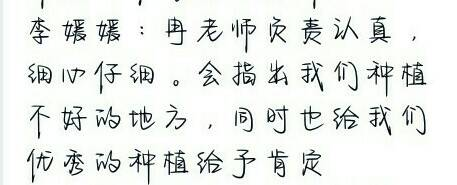 李媛媛：冉老师负责认真，
细心仔细。会指出我们种植
不好的地方，同时也给我们
优秀的种植给予肯定